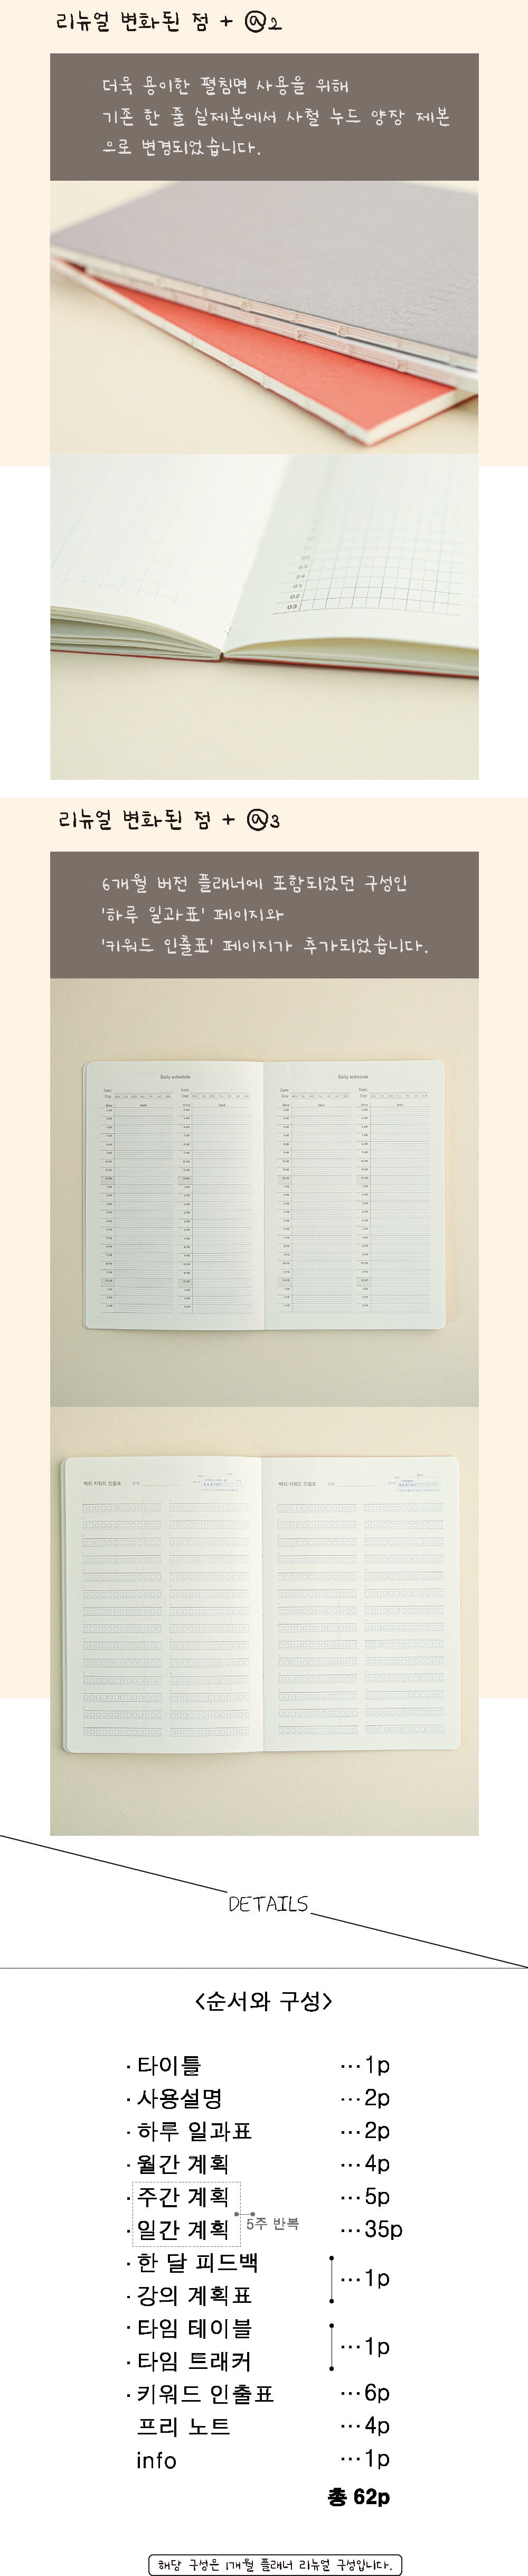 리뉴얼 변화된 점 + @2
더욱 용이한 펼침면 사용을 위해
기존 한 줄 실제본에서 사철 누드 양장 제본
으로 변경되었습니다.
01
02
03
리뉴얼 변화된 점 + @3
6개월 버전 플래너에 포함되었던 구성인
'하루 일과표' 페이지와
'키워드 인출표' 페이지가 추가되었습니다.
Daily schedule
Daily schedule
백지 키워드 인출표
백지 키워드 인출표
DETAILS
<순서와 구성>
· 타이틀 ···1p
· 사용설명 ···2p
· 하루 일과표 ···2p
· 월간 계획 ···4p
· 주간 계획 ···5p
· 일간 계획 ···35p
5주 반복
· 한 달 피드백
· 강의 계획표
···1p
· 타임 테이블
· 타임 트래커
···1p
· 키워드 인출표 ···6p
프리 노트 ···4p
info ···1p
총 62p
해당 구성은 1개월 플래너 리뉴얼 구성입니다.